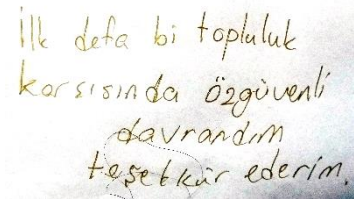 İlk defa bi topluluk
karşısında özgüvenli
davrandım
teşetkür ederim.